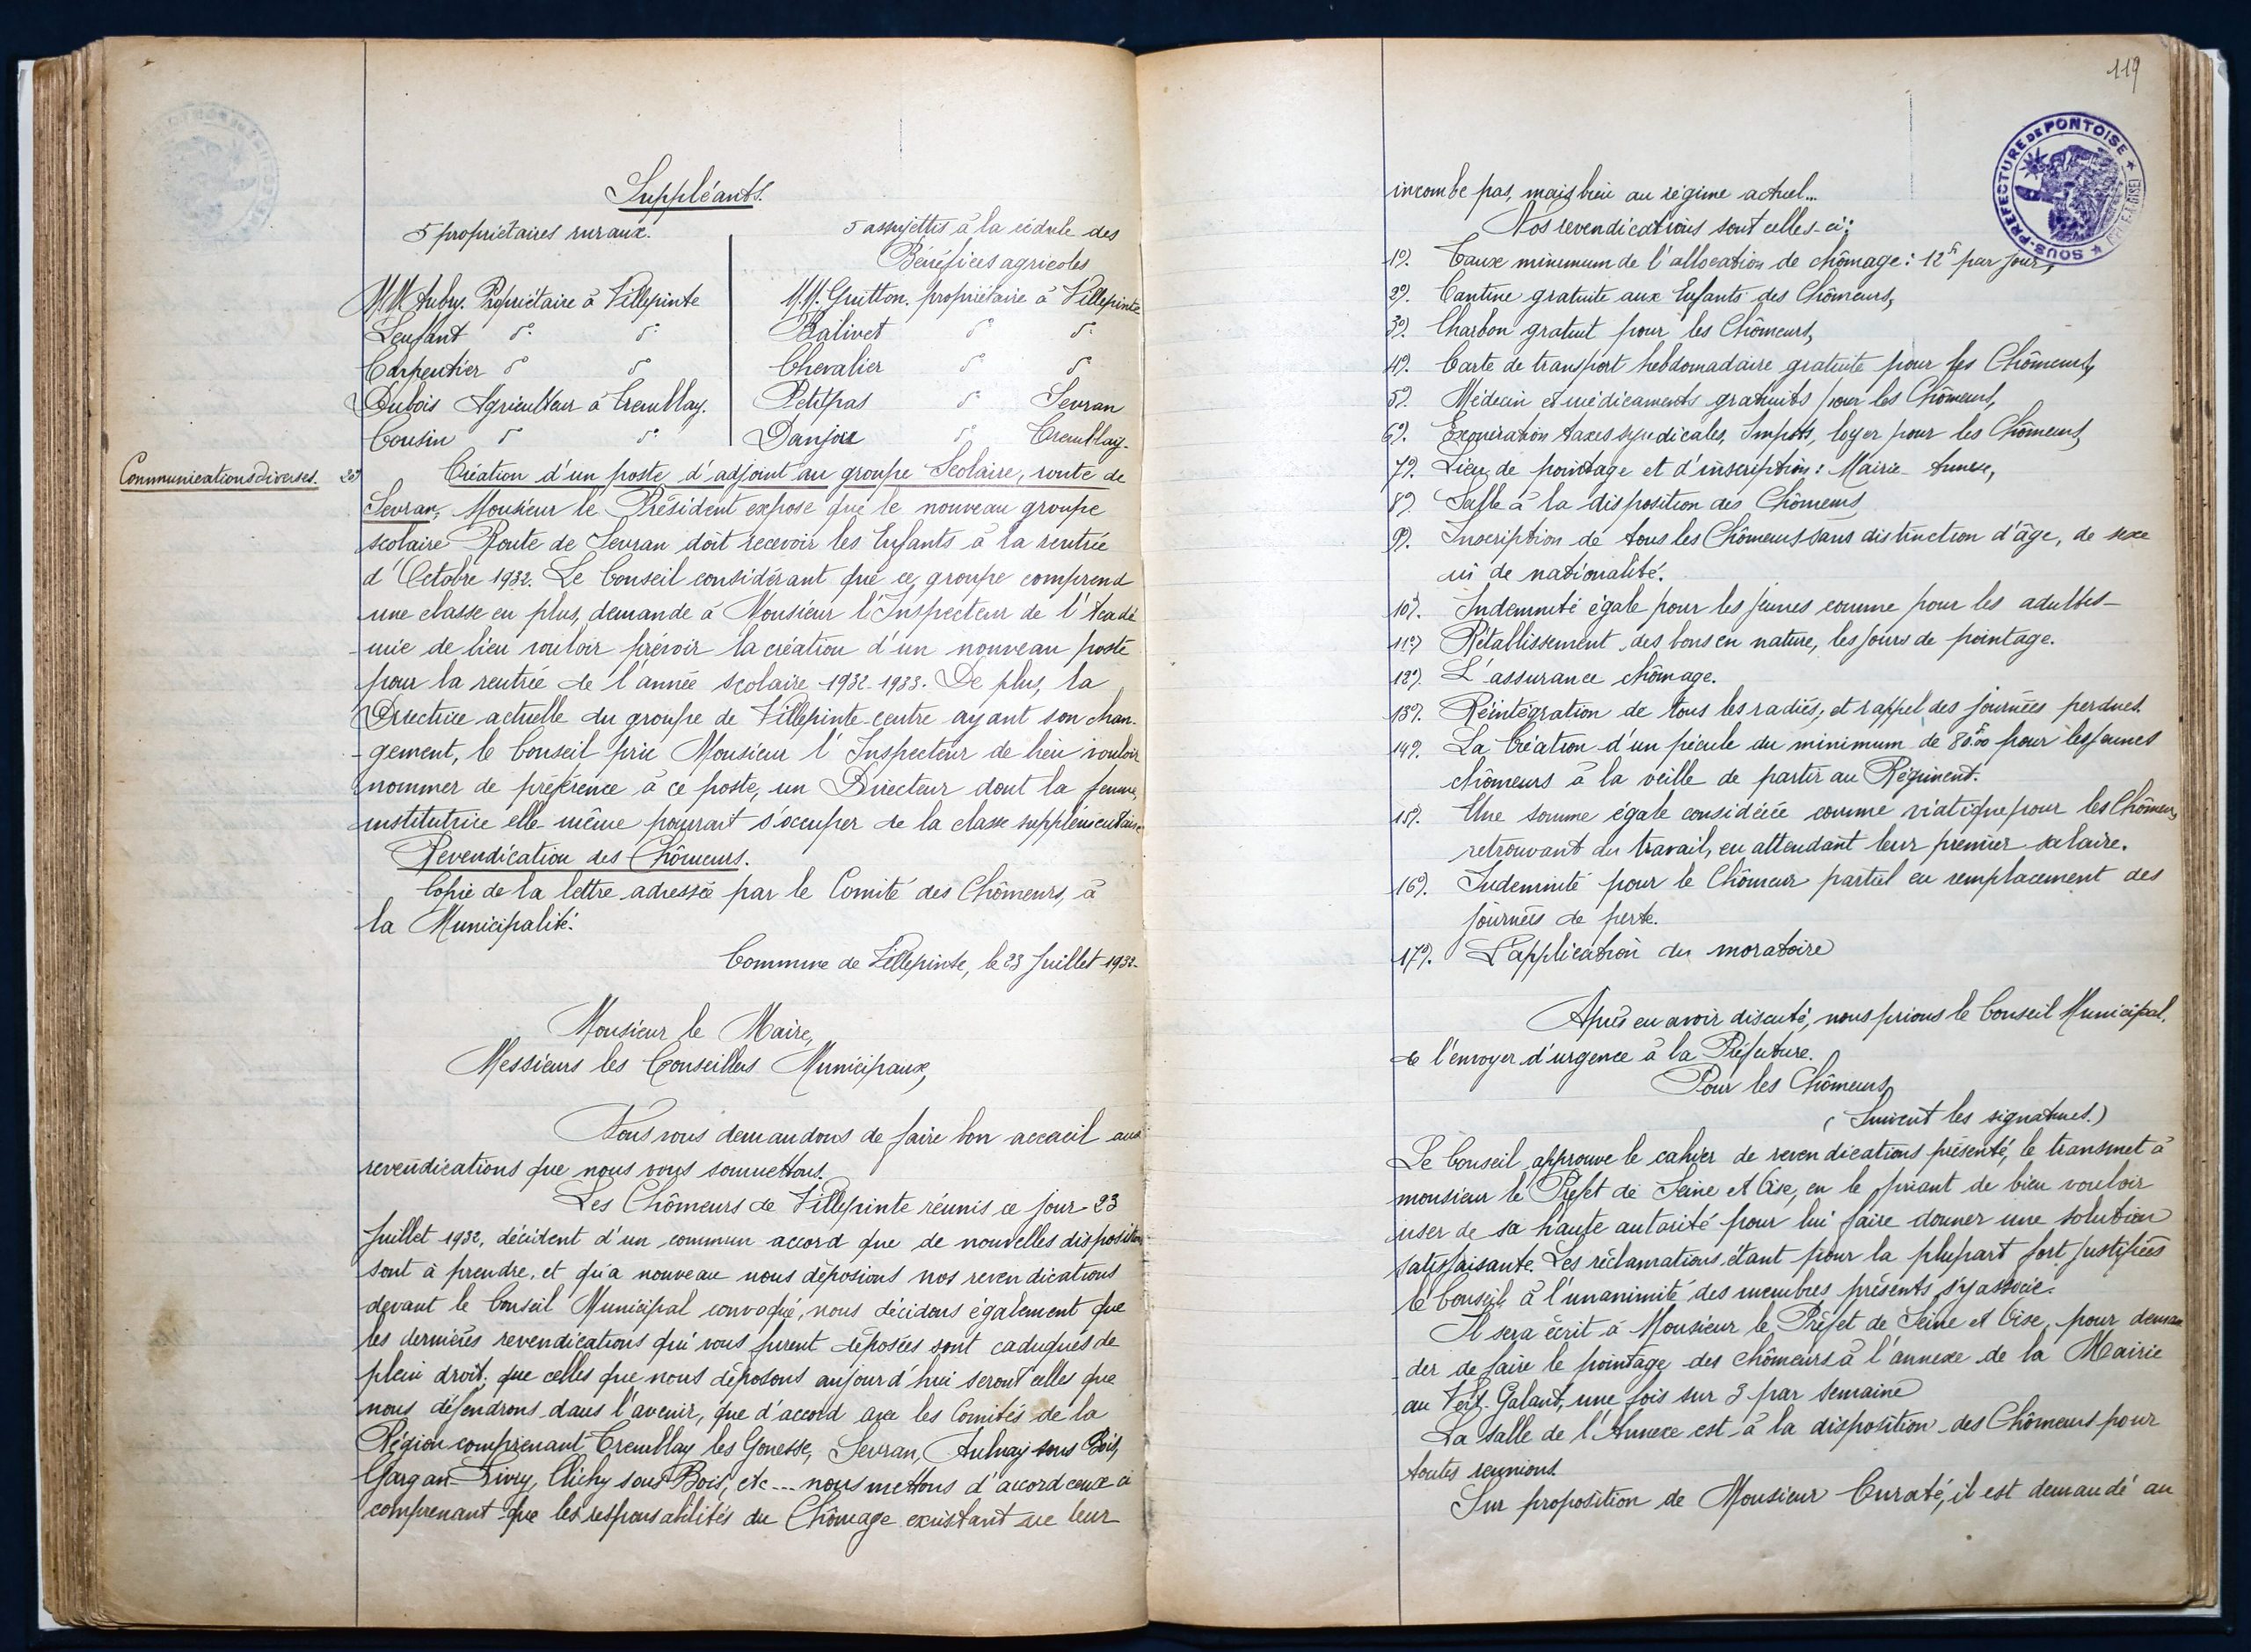 Suppléants.
5 propriétaires ruraux.
MM Aubry. Propriétaire à Villepinte
Lenfant do do
Carpentier do do
Dubois Agriculteur à Tremblay.
Cousin do do
5 assujettis à la cédule des
Bénéfices agricoles
M.M. Guitton. propriétaire à Villepinte
Balivet do do
Chevalier do do
Petitpas do Sevran
Danjou do Tremblay.
Communications diverses. 2o)
Création d'un poste d'adjoint au groupe Scolaire, route de
Sevran, Monsieur le Président expose que le nouveau groupe
scolaire Route de Sevran doit recevoir les Enfants à la rentrée
d'Octobre 1932. Le Conseil considérant que ce groupe comprend
une classe en plus, demande à Monsieur l'Inspecteur de l'Acadé
-mie de bien vouloir prévoir la création d'un nouveau poste
pour la rentrée de l'année scolaire 1932-1933. De plus, la
Directrice actuelle du groupe de Villepinte-centre ayant son chan-
-gement, le Conseil prie Monsieur l'Inspecteur de bien vouloir
nommer de préférence à ce poste, un Directeur dont la femme,
institutrice elle-même pourrait s'occuper de la classe supplémentaire
Revendication des Chômeurs.
Copie de la lettre adressée par le Comité des Chômeurs, à
la Municipalité.
Commune de Villepinte, le 23 Juillet 1932-
Monsieur le Maire,
Messieurs les Conseillers Municipaux,
Nous vous demandons de faire bon accueil aux
revendications que nous vous soumettons.
Les Chômeurs de Villepinte réunis ce jour 23
Juillet 1932, décident d'un commun accord que de nouvelles dispositions
sont à prendre, et qu'a nouveau nous déposions nos revendications
devant le Conseil Municipal convoqué, nous décidons également que
les dernières revendications qui vous furent déposées sont caduques de
plein droit, que celles que nous déposons aujourd'hui seront celles que
nous défendrons dans l'avenir, que d'accord avec les Comités de la
Région comprenant Tremblay les Gonesse, Sevran, Aulnay sous Bois,
Gargan-Livry, Clichy sous Bois, etc--- nous mettons d'accord ceux ci
comprenant que les responsabilités du Chômage existant ne leur
119
SOUS-PRÉFECTURE DE PONTOISE
incombe pas, mais bien au régime actuel...
Nos revendications sont celles-ci:
1o). Taux minimum de l'allocation de chômage: 12fr par jour,
2o). Cantine gratuite aux Enfants des Chômeurs,
3o). Charbon gratuit pour les Chômeurs,
4o). Carte de transport hebdomadaire gratuite pour les Chômeurs,
5o). Médecin et médicaments gratuits pour les Chômeurs,
6o). Exonération taxes syndicales, Impots, loyer pour les Chômeurs,
7o). Lieu de pointage et d'inscription: Mairie-Annexe,
8o) Salle à la disposition des Chômeurs
9o). Inscription de tous les Chômeurs sans distinction d'âge, de sexe
ni de nationalité.
10o). Indemnité égale pour les jeunes comme pour les adultes-
11o) Rétablissement des bons en nature, les jours de pointage.
12o) L'assurance chômage.
13o). Réintégration de tous les radiés, et rappel des journées perdues.
14o). La Création d'un pécule du minimum de 80fr00 pour les jeunes
chômeurs à la veille de partir au Régiment.
15o). Une somme égale considérée comme viatique pour les Chômeurs
retrouvant du travail, en attendant leur premier salaire.
16o). Indemnité pour le Chômeur partiel en remplacement des
journées de perte.
17o). L'application du moratoire
Après en avoir discuté, nous prions le Conseil Municipal.
de l'envoyer d'urgence à la Préfecture.
Pour les Chômeurs,
(Suivent les signatures.)
Le Conseil approuve le cahier de revendications présenté, le transmet à
monsieur le Préfet de Seine et Oise, en le priant de bien vouloir
user de sa haute autorité pour lui faire donner une solution
satisfaisante. Les réclamations étant pour la plupart fort justifiées
le Conseil à l'unanimité des membres présents s'y associe.
Il sera écrit à Monsieur le Préfet de Seine et Oise, pour deman
-der de faire le pointage des chômeurs à l'annexe de la Mairie
au Vert-Galant, une fois sur 3 par semaine
La salle de l'Annexe est à la disposition des Chômeurs pour
toutes reunions.
Sur proposition de Monsieur Curaté, il est demandé au